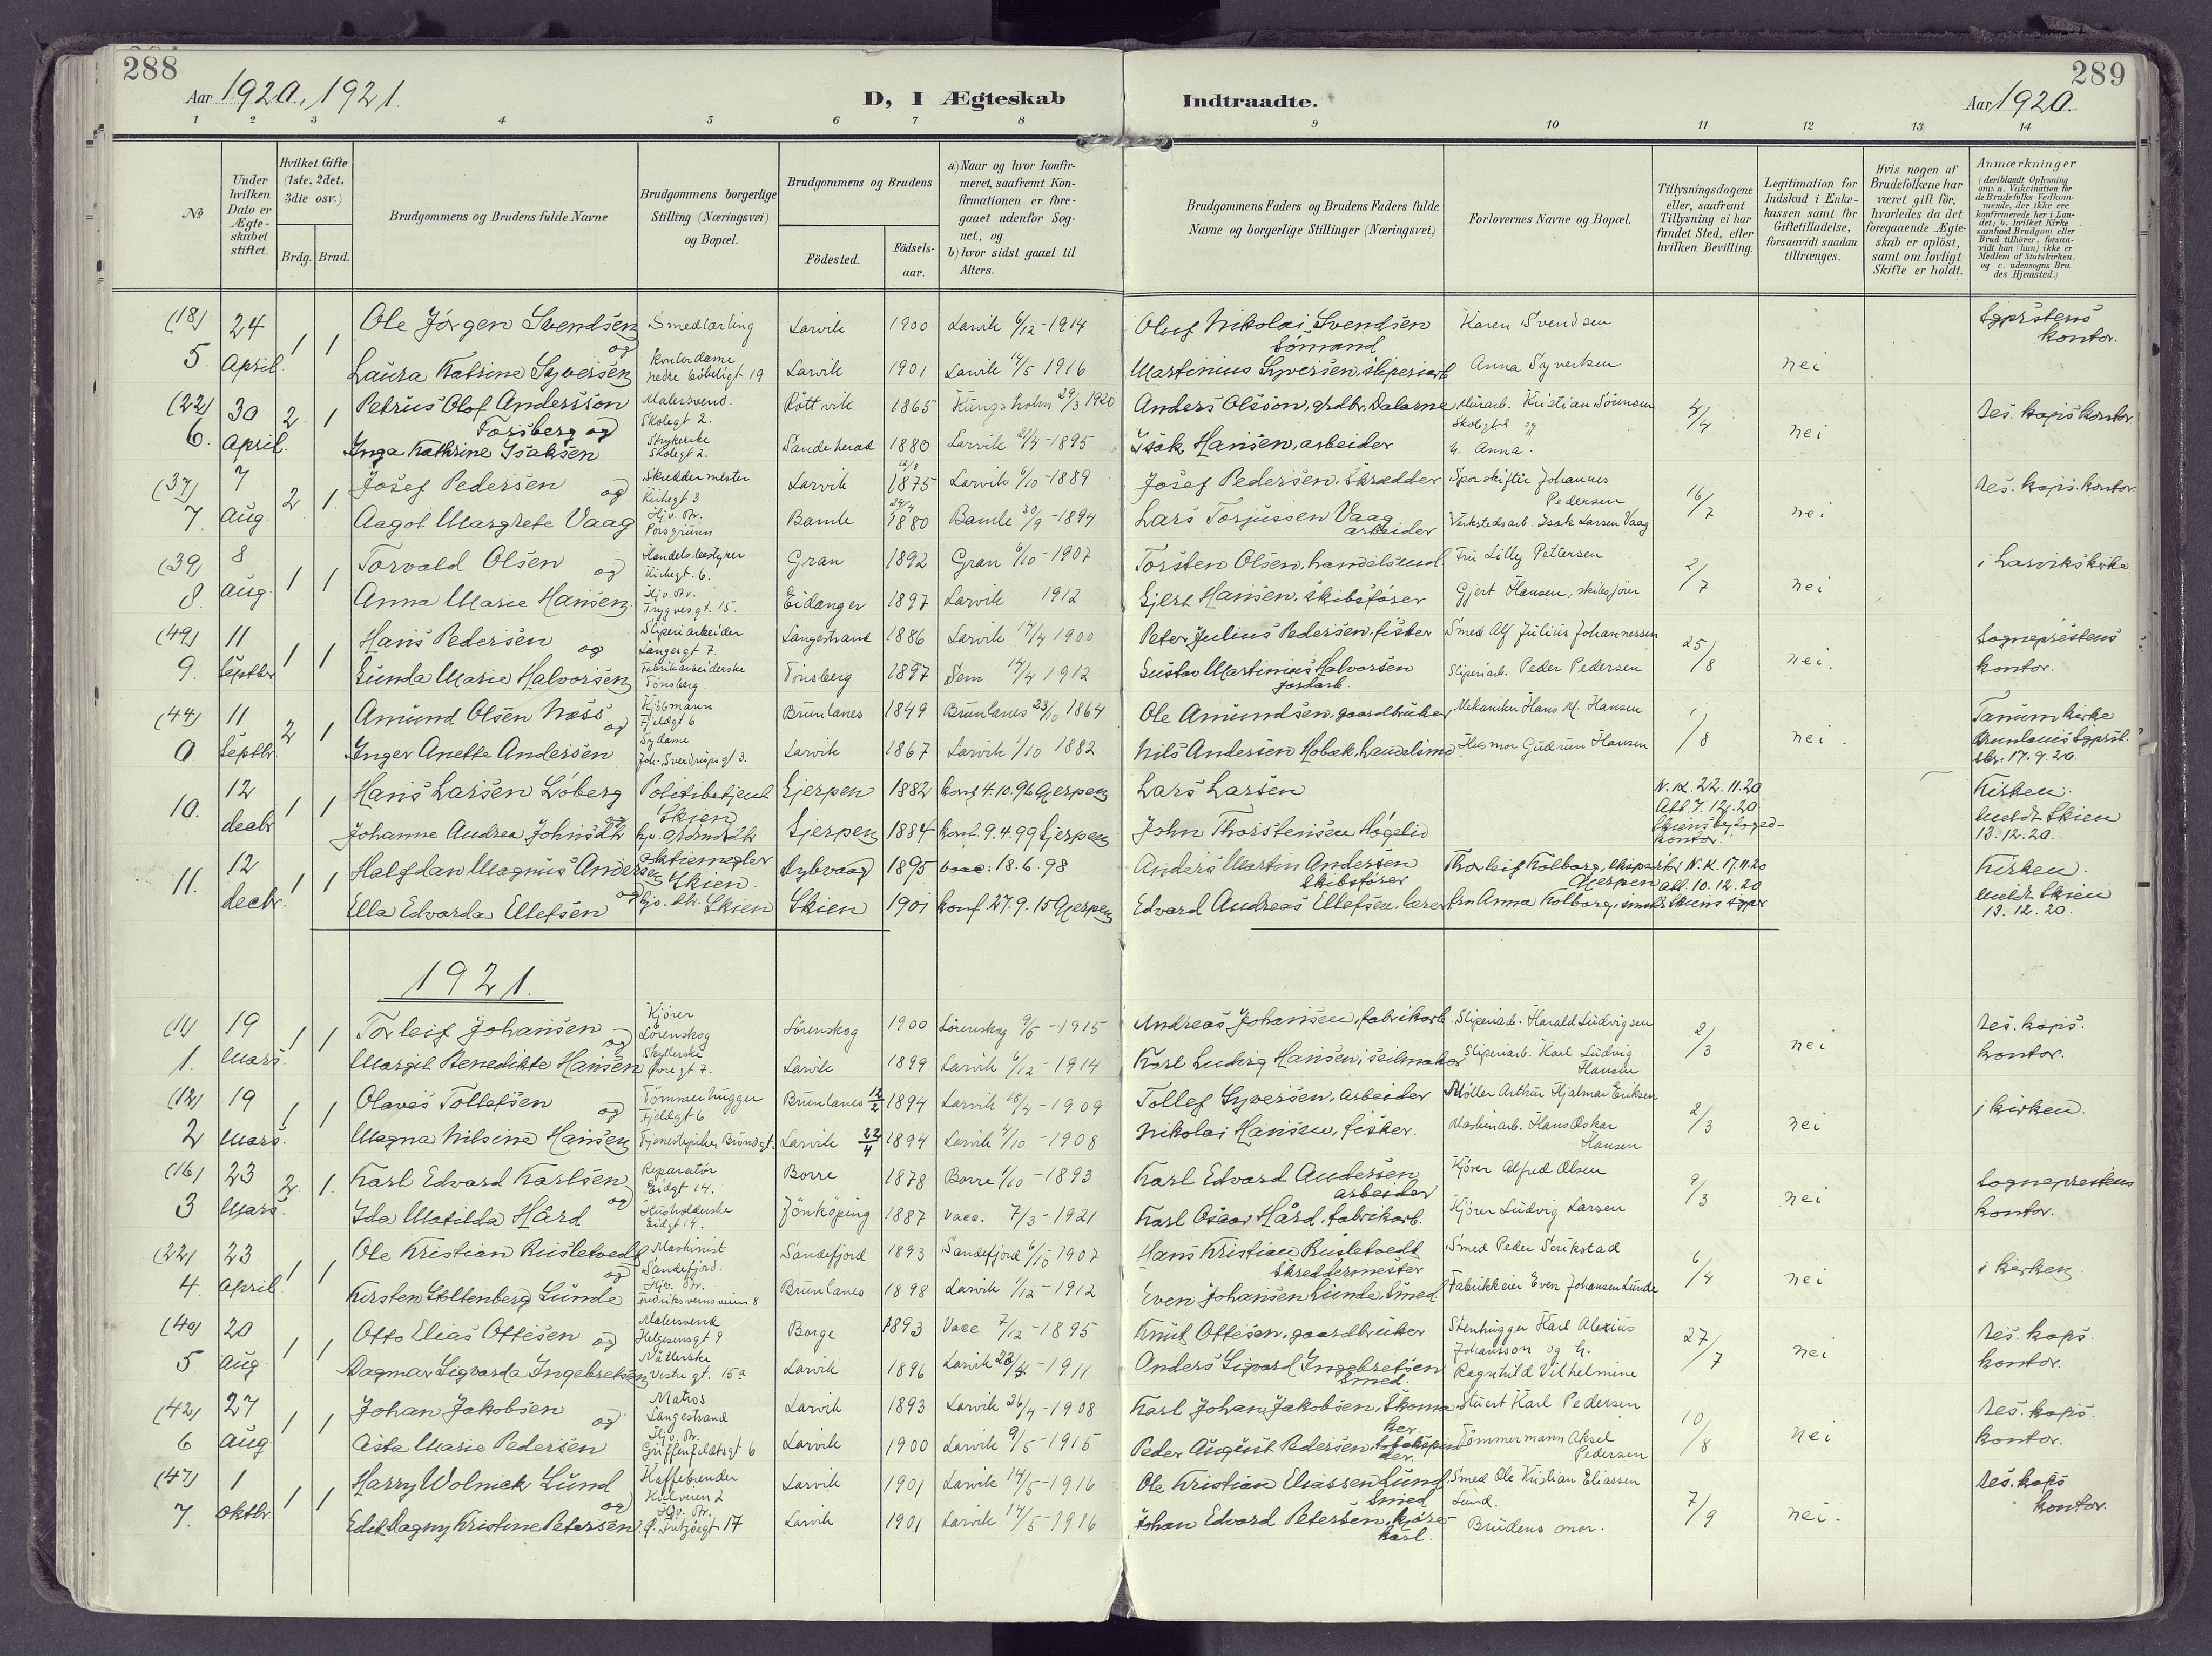 288
Aar 1920, 1921.
D, I Ægteskab
Indtraadte.
Aar 1920.
289
1 2 3 4 5 6 7 8 9 10 11 12 13 14
No
Under hvilken Dato er Ægteskabet stiftet.
Hvilket Gifte (1ste, 2det, 3die osv.)
Brdg. Brud.
Brudgommens og Brudens fulde Navne
Brudgommens borgerlige Stilling (Næringsvei) og Bopæl.
Brudgommens og Brudens
Födested.
Födsels-aar.
a) Naar og hvor konfirmeret, saafremt Konfirmationen er foregaaet udenfor Sognet, og
b) hvor sidst gaaet til Alters.
Brudgommens Faders og Brudens Faders fulde Navne og borgerlige Stillinger (Næringsvei)
Forlovernes Navne og Bopæl.
Tillysningsdagene eller, saafremt Tillysning ei har fundet Sted, efter hvilken Bevilling.
Legitimation for Indskud i Enkekassen samt for Giftetilladelse, forsaavidt saadan tiltrænges.
Hvis nogen af Brudefolkene har været gift för, hvorledes da det foregaaende Ægteskab er oplöst, samt om lovligt Skifte er holdt.
Anmærkninger
(deriblandt Oplysning om: a. Vakcination för de Brudefolks Vedkommende, der ikke ere konfirmerede her i Landet; b. hvilket Kirkesamfund Brudgom eller Brud tilhörer, forsaavidt han (hun) ikke er Medlem af Statskirken, og c. udensogns Brudes Hjemsted.)
(18) 24 1 1 Ole Jörgen Svendsen og Smedlærling Larvik 1900 Larvik 6/12-1914 Oluf Nikolai Svendsen Sömand Karen Svendsen Sgprstens kontor.
5. April. Laura Katrine Syversen Kontordame Larvik 1901 Larvik 14/5 1916 Martinius Syversen, sliperiarb. Anna Syvertsen nei
(22) 30 2 1 Petrus Olof Andersson Forsberg og Malersvend. Skolegt 2. Rättvik 1865 Kungsholm 29/3 1920 Anders Olsson, grdbr. Dalarne Murarb. Kristian Sörensen Skolegt 2 og 4/4 res. kaps kontor.
6. April. Inga Kathrine Isaksen Strykerske Skolegt 2. Sandeherad 1880 Larvik 21/4-1895 Isak Hansen, arbeider h. Anna. nei
(37) 7 2 1 Josef Pedersen og Skreddermester Kirkegt 3 Larvik 12/8 1875 Larvik 6/10-1889 Josef Pedersen, Skrædder Sporskifter Johannes Pedersen 16/7 res. kaps. kontor.
7. Aug. Aagot Margrete Vaag Hjv. Dtr. Porsgrunn Bamle 24/4 1880 Bamle 30/9-1894 Lars Torjussen Vaag arbeider Verkstedsarb. Isak Larsen Vaag nei
(39) 8 1 1 Torvald Olsen og Handelsbestyrer Kirkegt. 6. Gran 1892 Gran 6/10-1907 Torsten Olsen, handelsmd. Fru Lilly Pettersen 2/7 i Larviks kirke
8. aug. Anna Marie Hansen Hjv. Dtr. Trygvesgt. 15. Eidanger 1897 Larvik 1912 Gjert Hansen, skibsförer Gjert Hansen, skibsförer nei
(49) 11 1 1 Hans Pedersen og Sliperiarbeider Langesgt 7. Langestrand 1886 Larvik 17/4 1900 Peter Julius Pedersen, fisker Smed Alf Julius Johannessen 25/8 Sogneprestens kontor.
9. Septbr Gunda Marie Halvorsen Fabrikarbeiderske Tönsberg Tönsberg 1897 Sem 14/4 1912 Gustav Martinius Halvorsen jordarb. Sliperiarb. Peder Pedersen nei.
(44) 11 2 1 Amund Olsen Næss og Kjöbmann Fjeldgt 6 Brunlanes 1849 Brunlanes 23/10 1864 Ole Amundsen, gaardbruker Mekaniker Hans M. Hansen 1/8 Tanum kirke
0 Septbr. Inger Anette Andersen Sydame Larvik 1867 Larvik 1/10 1882 Nils Andersen Hobæk, handelsmd Husmor Gudrun Hansen nei. 17.9.20.
10. 12 decbr 1 1 Hans Larsen Löberg og Politibetjent Skien Gjerpen 1882 konf. 4.10.96 Gjerpen Lars Larsen N.K. 22.11.20 Att. 7.12.20 Kirken. meldt Skien 13.12.20.
Johanne Andrea Johnsdtr Gjerpen 1884 konf. 9.4.99 Gjerpen John Thorstensen Högelid
11. 12 decbr. 1 1 Halfdan Magnus Andersen og aktiemegler Skien Dybvaag 1895 vacc: 18.6.98 Anders Martin Andersen Skibsförer Thorleif Kolborg, Gjerpen N.K. 17.11.20 att. 10.12.20 Kirken. meldt Skien 13.12.20.
Ella Edvarda Ellefsen hjv. dtr. Skien Skien 1901 konf. 27.9.15 Gjerpen Edvard Andreas Ellefsen, lærer fru Anna Kolborg,
1921.
(11) 19 1 1 Torleif Johansen og Kjörer Lörenskog Lörenskog 1900 Lörenskog 9/5-1915 Andreas Johansen, fabrikarb. Sliperiarb. Harald Ludvigsen 2/3 res. kaps. kontor.
1. Mars. Margit Benedikte Hansen Larvik 1899 Larvik 6/12-1914 Karl Ludvig Hansen, seilmaker Sliperiarb. Karl Ludvig Hansen nei
(12) 19 1 1 Olaves Tollefsen og Tömmerhugger Fjeldgt 6 Brunlanes 12/2 1894 Larvik 18/4-1909 Tollef Syversen, Arbeider Möller Arthur Hjalmar Eriksen 2/3 i kirken.
2 Mars. Magna Nilsine Hansen Tjenestepike, Bröndgt. Larvik 22/4 1894 Larvik 4/10-1908 Nikolai Hansen, fisker. Maskinarb. Hans Oskar Hansen nei
(16) 23 2 1. Karl Edvard Karlsen og Reparatör Eidgt 14. Borre 1878 Borre 1/10-1893 Karl Edvard Andersen arbeider Kjörer Alfred Olsen 9/3 Sogneprestens kontor.
3 Mars. Ida Matilda Hård Husholderske Eidgt 14. Jönköping 1887 Vacc. 7/3-1921 Karl Oscar Hård, fabrikarb. Kjörer Ludvig Larsen nei
(22) 23 1 1 Ole Kristian Rusletvedt og Maskinist Sandefjord. Sandefjord 1893 Sandefjord 6/10 1907 Hans Kristian Rusletvedt Skreddermester Smed Peder Serikstad 6/4 i kirken
4. April. Kirsten Stoltenberg Lunde Hjv. Dtr. Fredriksvernsveien 8 Brunlanes 1898 Larvik 1/12-1912 Even Johansen Lunde, Smed Fabrikkeier Even Johansen Lunde nei
(40) 20 1 1 Otto Elias Ottesen og Malersvend Helgesensgt 9 Borge 1893 Vacc 7/12-1895 Knut Ottesen, gaardbruker Stenhugger Karl Alexius Johansson og h. 27/7 res. kaps. kontor.
5 Aug. Dagmar Sigvarda Ingebretsen Nåtlerske Vestre gt. 15a Larvik 1896 Larvik 23/4-1911 Anders Sigvard Ingebretsen Smed. Ragnhild Vilhelmine nei
(42) 27 1 1 Johan Jakobsen og Matros Langestrand Larvik 1893 Larvik 26/4-1908 Karl Johan Jakobsen, Skomaker Stuert Karl Pedersen 10/8 res. kaps. kontor.
6 Aug Asta Marie Pedersen Hjv. Dtr. Griffenfeldtsgt 6 Larvik 1900 Larvik 9/5-1915 Peder August Pedersen, tobakspinder. Tömmermann Aksel Pedersen nei
(47) 1 1 1 Harry Wolnick Lund og Kaffebrender Larvik 1901 Larvik 14/5-1916 Ole Kristian Eliassen Lund Smed Smed Ole Kristian Eliassen Lund. 7/9 res. kaps kontor.
7. oktbr. Edit Dagny Kristine Petersen Hjv. Dtr. Larvik 1901 Larvik 14/5-1916 Johan Edvard Petersen, kjörekarl. Brudens mor. nei.